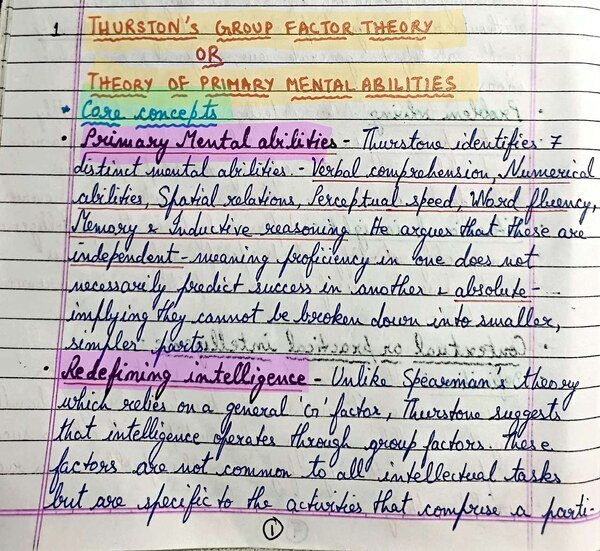 1. THURSTON'S GROUP FACTOR THEORY
OR
THEORY OF PRIMARY MENTAL ABILITIES
* Core concepts
• Primary Mental abilities - Thurstone identifies 7
distinct mental abilities - Verbal comprehension, Numerical
abilities, Spatial relations, Perceptual speed, Word fluency,
Memory & Inductive reasoning. He argues that these are
independent - meaning proficiency in one does not
necessarily predict success in another & absolute -
implying they cannot be broken down into smaller,
simpler parts.
• Redefining intelligence - Unlike Spearman's theory
which relies on a general 'G' factor, Thurstone suggests
that intelligence operates through group factors. These
factors are not common to all intellectual tasks
but are specific to the activities that comprise a parti-
1